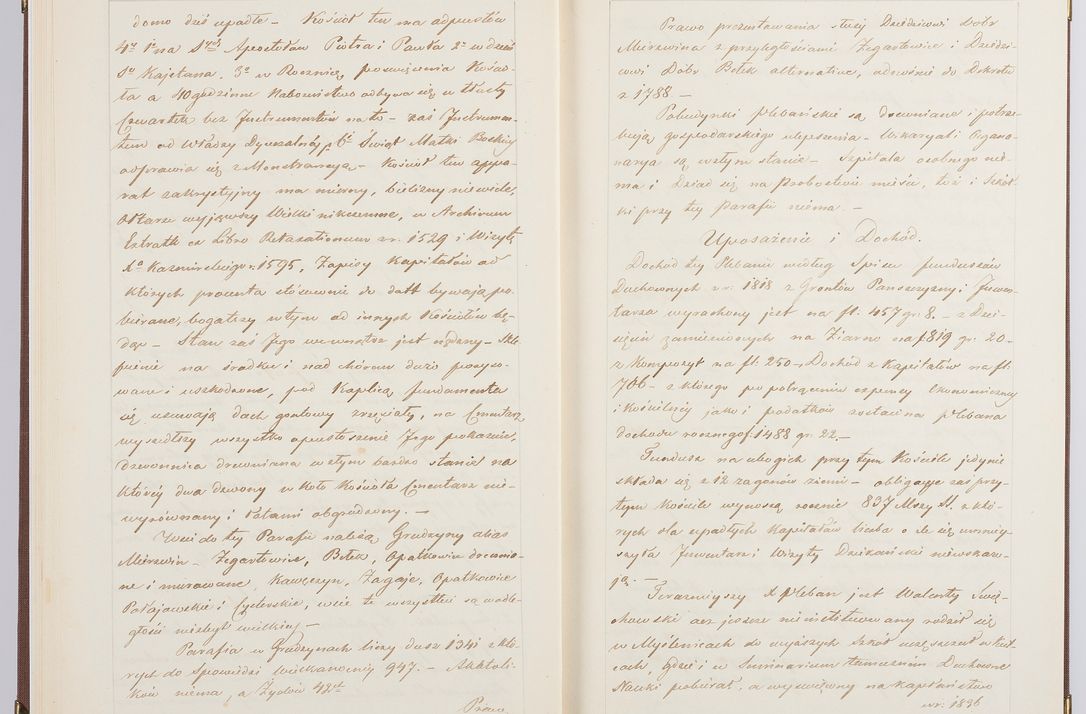 domo dziś upadłe – Kościół ten ma odpustów
4ry 1o na SSych Apostołów Piotra i Pawła 2o w dzień
So Kajetana, 3o w Rocznicę poświęcenia Kościo-
ła a 40godzinne Nabożeństwo odbywa się w tłusty
Czwartek bez Instrumentów na to – zaś Instrumen-
tem od Władzy Dyecezalnéj Świąt Matki Boskiéj
odprawia się z Monstrancyą – Kościół ten appa-
rat zakrystyjny ma mierny, bielizny niewiele,
Ołtarze wyjąwszy Wielki nikczemne, w Archivum
Extrakt ex Libro Retaxationum z r. 1529 i Wizytę
Xa Kazimirskiego r. 1595, Zapisy Kapitałów od
których procenta stósownie do datt bywają po-
bierane, bogatszy w tym od innych Kościołów bę-
dąc – Stan zaś Jego wewnątrz jest nędzny – Skle-
pienie na środku i nad chórem dużo porysy-
wane i uszkodzone, pod Kaplicą fundamenta
się usuwają dach gontowy zrzęciały, na Cmentarz
wyszedłszy wszystko opustoszenie Jego pokazuie,
dzwonnica drewniana w złym bardzo stanie na
któréj dwa dzwony w koło Kościoła Cmentarz nie-
wyrównany i Płotami obgrodzony. –
Wsi do téj Parafii należą Grudzyny alias
Mierzwin – Zegartowice, Bełek, Opatkowice drewnia-
ne i murowane, Kawęczyn, Zagaje, Opatkowice
Potajowskie i Cysterskie, wsie te wszystkie są w odle-
głości niezbyt wielkiéj –
Parafia w Grudzynach liczy dusz 1341 z któ-
rych do Spowiedzi wielkanocnéj 947. – Akatoli-
ków niema, a Żydów 42ch
Prawo
Prawo prezentowania służy Dziedzicowi Dobr
Mierzwina z przyległościami Zegartowice i Dziedzi-
cowi Dóbr Bełek alternative, odnośnie do Dekretu
z 1788 –
Pobudynki plebańskie są drewniane i potrze-
bują gospodarskiego ulepszenia – Wikaryat i Organi-
narya są w złym stanie – Szpitala osobnego nie-
ma i Dziad się na Probostwie mieści, toż i Szkół-
ki przy téj Parafii niema –
Uposażenie i Dochód.
Dochód téj Plebanii według Spisu funduszów
Duchownych z r. 1818 z Grontów Pańszczyzny i Inwen-
tarza wyrachowany jest na fł: 457 gr: 8. – z Dzie-
sięcin zamienionych na Ziarno na f 819 gr. 20 –
z Kompozyt na fł: 250 –, Dochód z Kapitałów na fł:
706 – z którego po potrąceniu expensy Ekonomicznej
i Kościelnéj jako i podatków zostaie na plebana
dochodu rocznego f. 1488 gr. 22. –
Fundusz na ubogich przy tym Kościele jedynie
składa się z 12 zagonów ziemi – obligacye zaś przy
tym Kościele wynoszą rocznie 837 Mszy S. z któ-
rych dla upadłych Kapitałów liczba o ile się umniej-
szyła Inwentarz i Wizyty Dziekańskie niewskazu-
ją. –
Teraźniejszy X Pleban jest Walenty Świę-
chowski acz jeszcze nieinstytuowany rodził się
w Myślenicach do wyższych Szkół uczęszczał w Kiel-
cach, gdzie i w Seminarium tamecznem Duchowne
Nauki pobierał, a wyświęcony na Kapłaństwo
w r: 1836